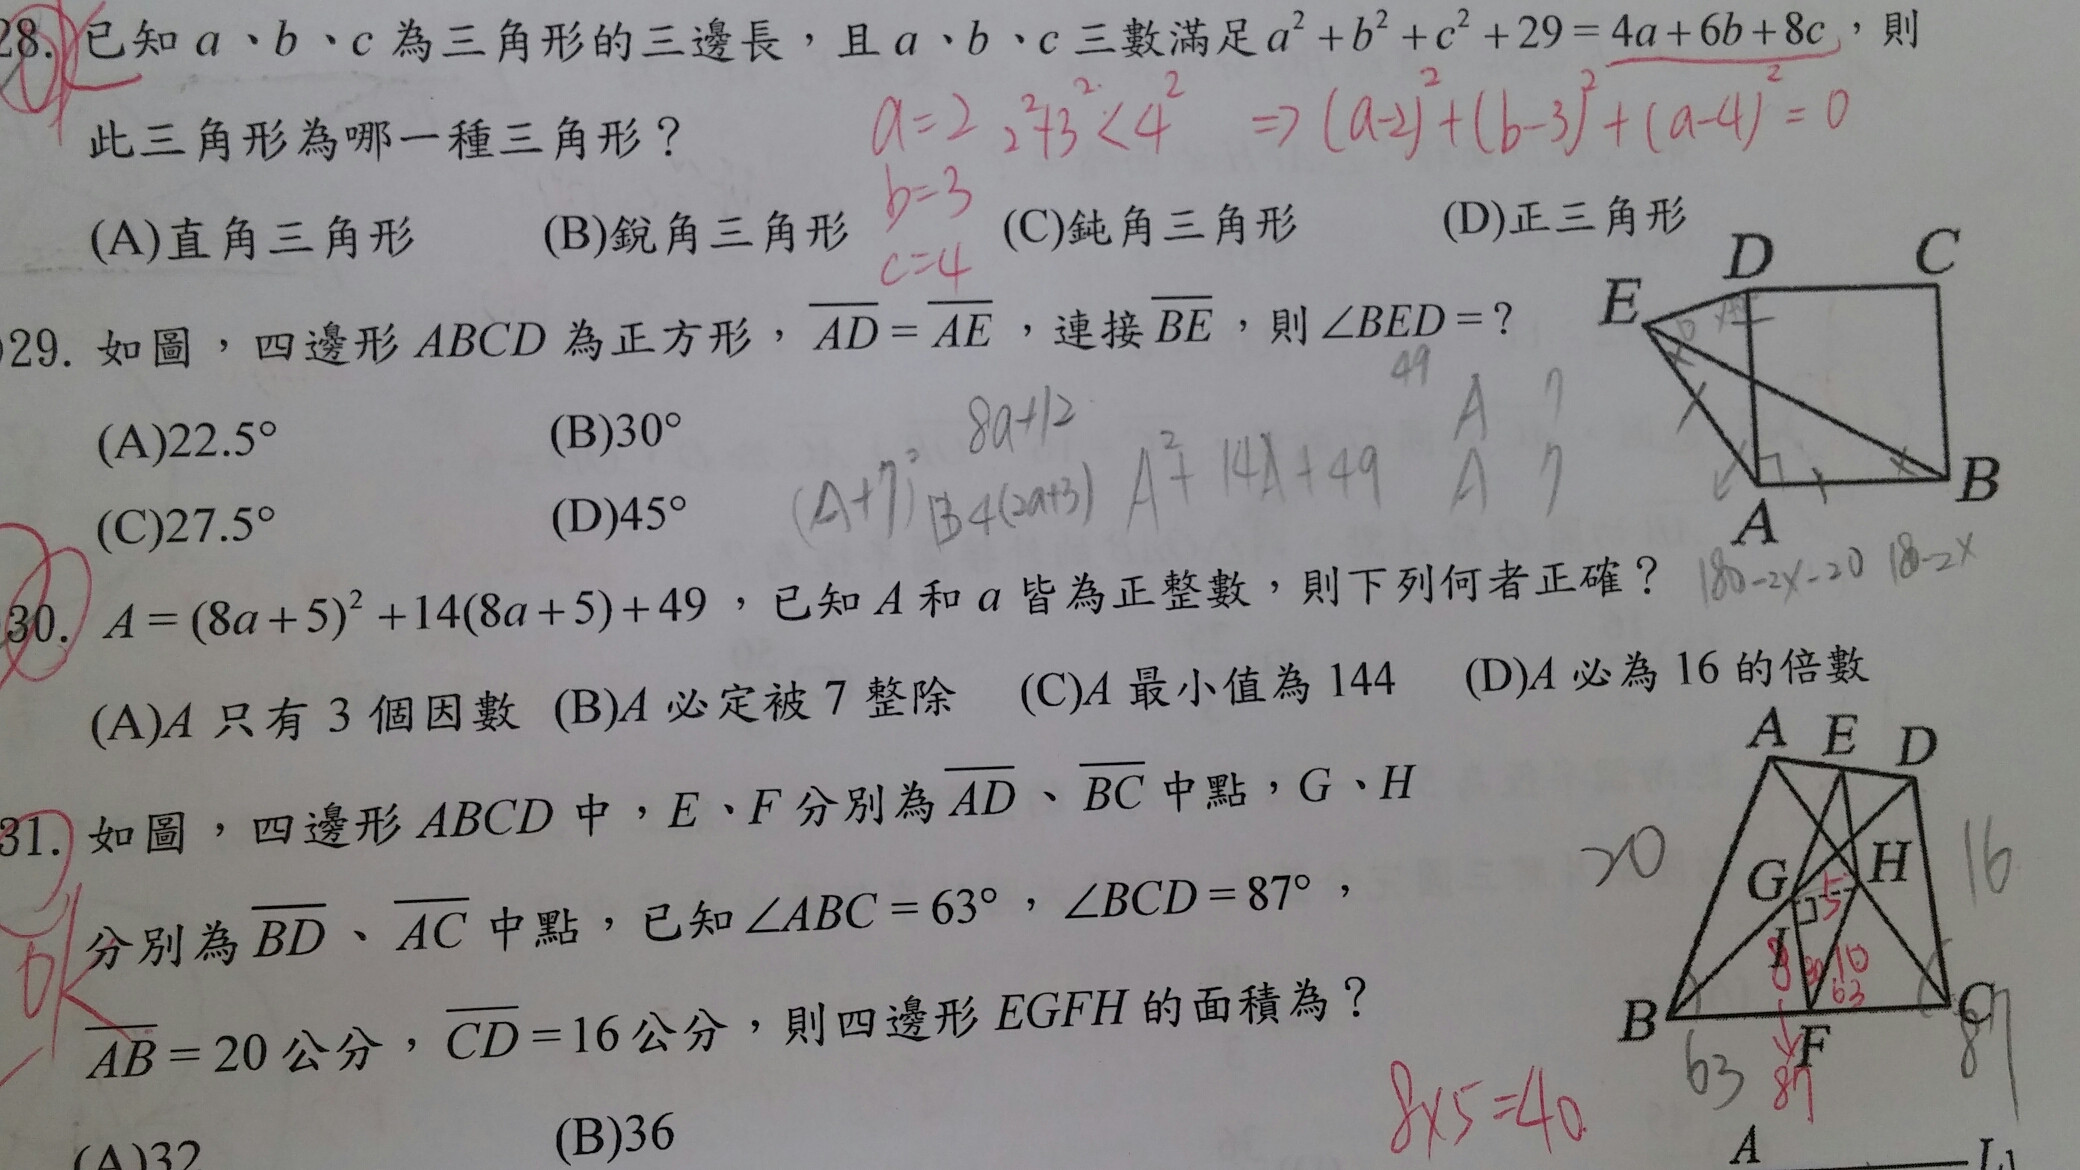 28. 已知 a、b、c 為三角形的三邊長，且 a、b、c 三數滿足 a²+b²+c²+29=4a+6b+8c，則
此三角形為哪一種三角形？
a=2 2²+3²<4² ⇒(a-2)²+(b-3)²+(a-4)²=0
b=3
c=4
(A)直角三角形 (B)銳角三角形 (C)鈍角三角形 (D)正三角形
29. 如圖，四邊形 ABCD 為正方形，AD=AE，連接 BE，則∠BED=？
E D C B A
(A)22.5° (B)30°
(C)27.5° (D)45°
8a+12 49 A 7
(A+7)² 4(2a+3) A²+14A+49 A 7
180-2x-20 180-2x
30. A=(8a+5)²+14(8a+5)+49，已知 A 和 a 皆為正整數，則下列何者正確？
(A)A 只有 3 個因數 (B)A 必定被 7 整除 (C)A 最小值為 144 (D)A 必為 16 的倍數
31. 如圖，四邊形 ABCD 中，E、F 分別為 AD、BC 中點，G、H
分別為 BD、AC 中點，已知∠ABC=63°，∠BCD=87°，
AB=20 公分，CD=16 公分，則四邊形 EGFH 的面積為？
A E D
20 G H 16
5
I
8 10
63
B F C
63 87 87
ok
8×5=40
(A)32 (B)36
A